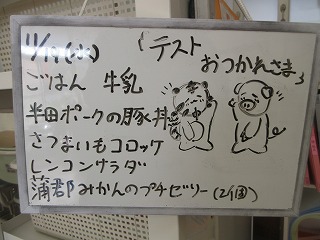 11/17(水)
「テスト
おつかれさま」
ごはん 牛乳
半田ポークの豚丼
さつまいもコロッケ
レンコンサラダ
蒲郡みかんのプチゼリー(2個)